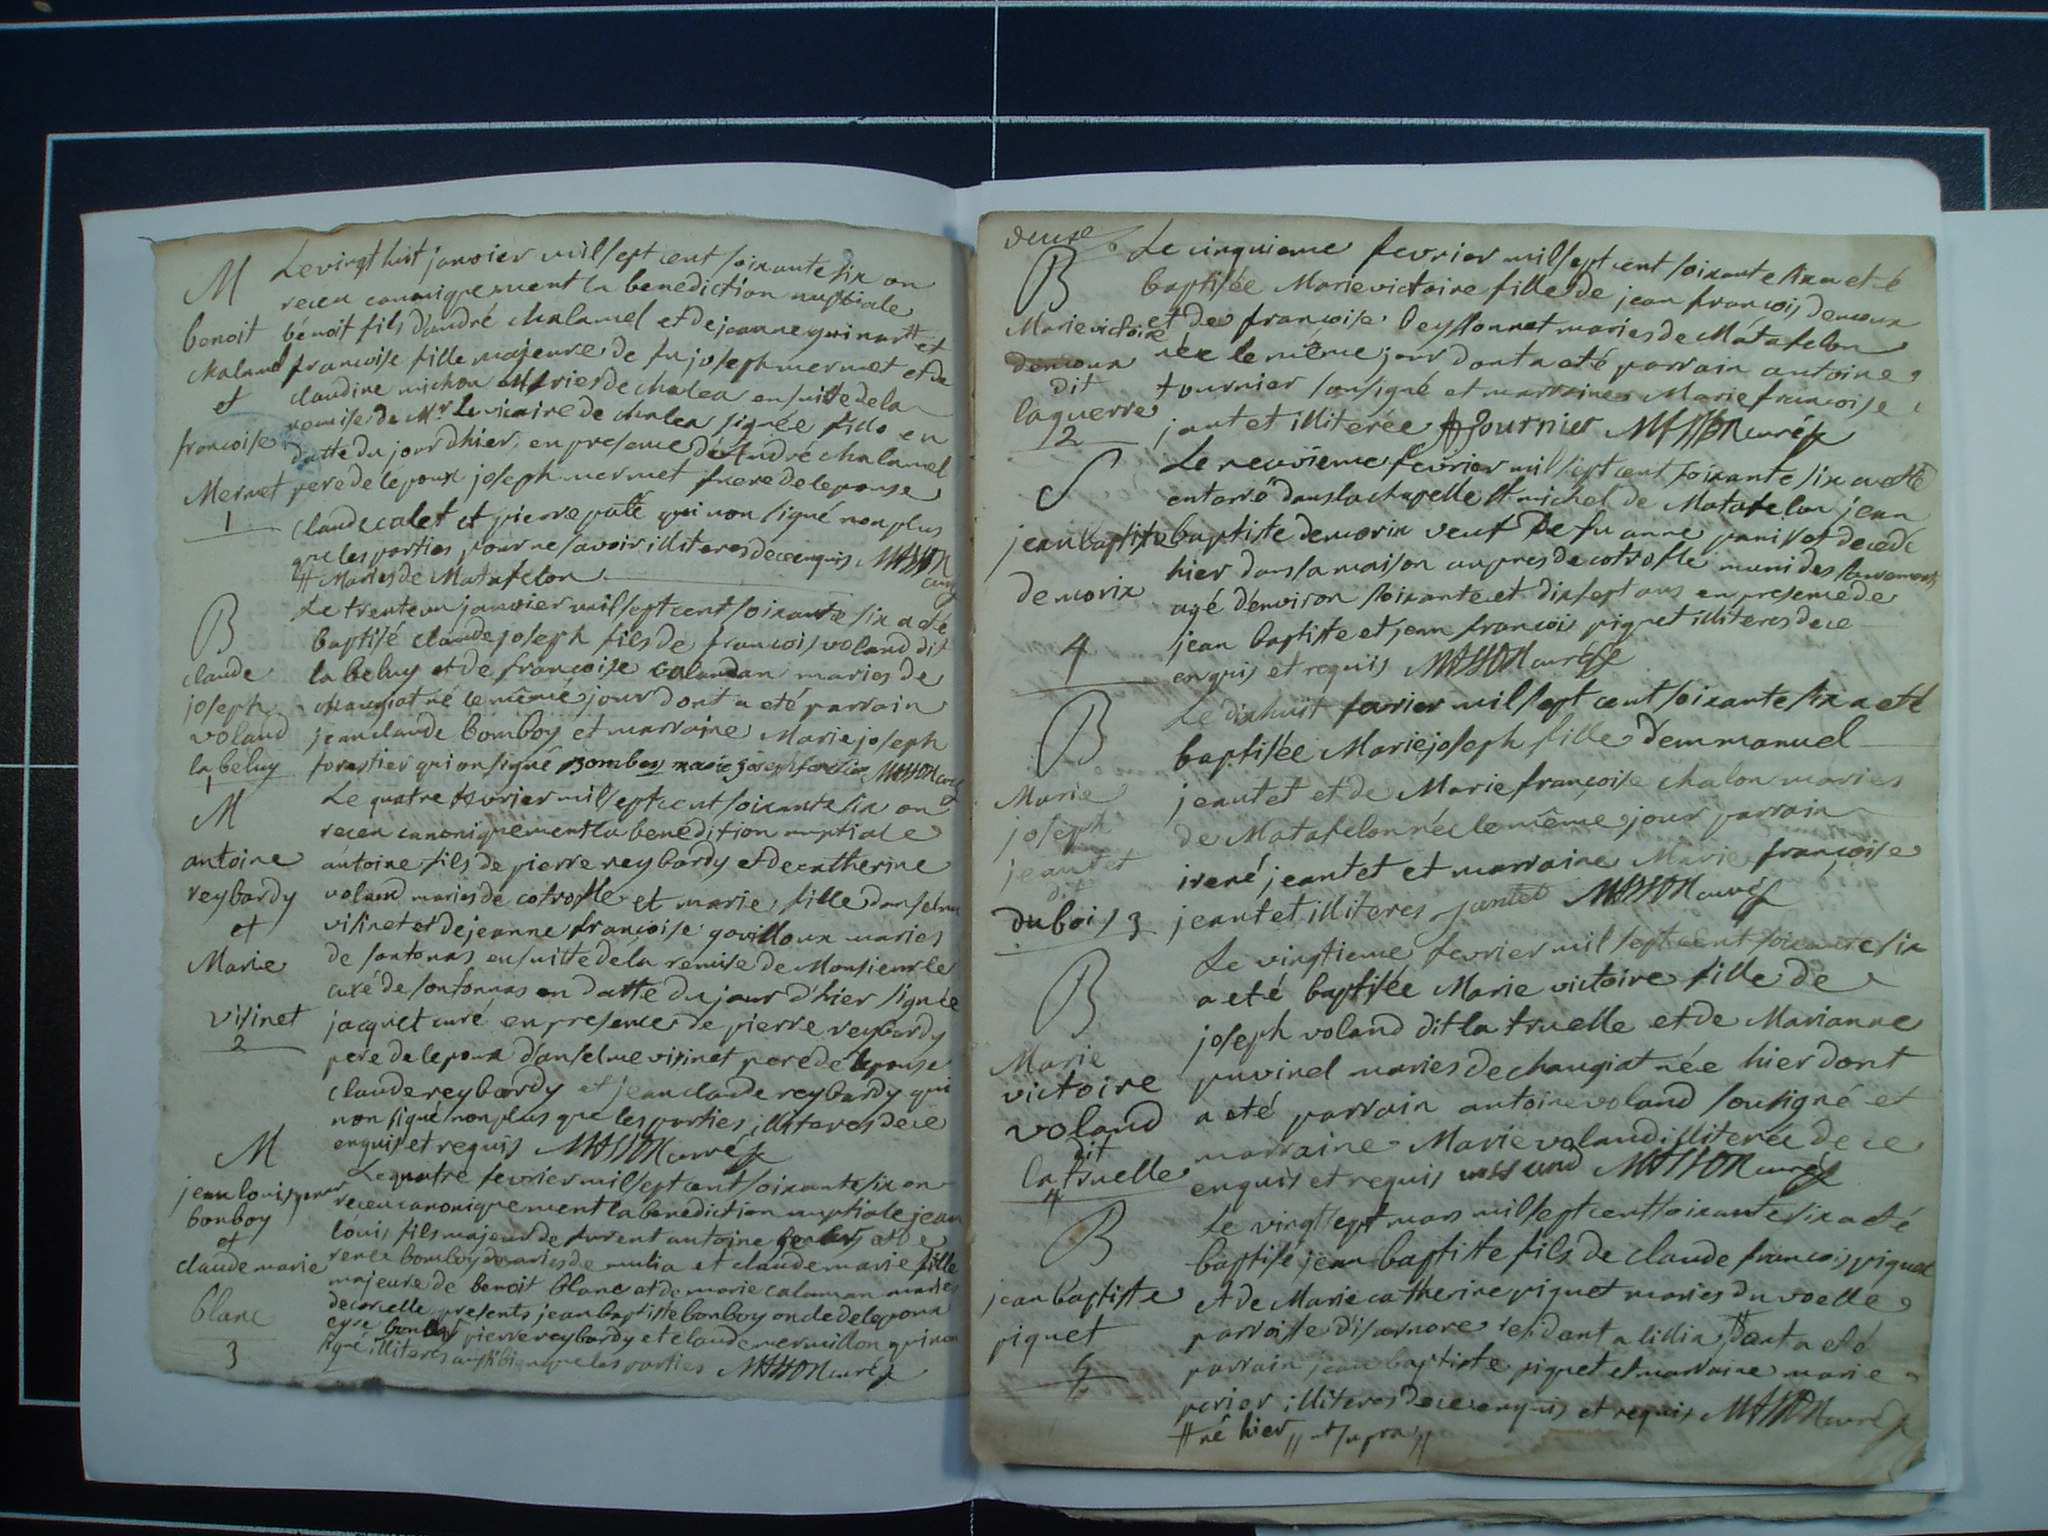 M
benoit
chalamel
et
francoise
Mermet
1
Le vingt huit janvier mil sept cent soixante six on
receu canoniquement la benediction nuptiale
benoit fils d'andré chalamel et de jeanne guinart # et
francoise fille majeure de fu joseph mermet et de
claudine michon Mariés de chalea ensuitte de la
remise de Mr. Le vicaire de chalea signée fido en
datte du jour d'hier, en presence d'André chalamel
pere de l'epoux joseph mermet frere de l'epouse
claude calet et pierre paté qui non signé non plus
que les parties pour ne savoir illiteres de ce enquis MASSON
curé
# Mariés de Matafelon
B
claude
joseph
voland
la beluy
1
Le trente un janvier mil sept cent soixante six a été
baptisé claude joseph fils de francois voland dit
la beluy et de francoise calaman mariés de
changiat né le même jour dont a eté parrain
jean claude bomboy et marraine Marie joseph
forestier qui on signé bomboy marie joseph forestier MASSON curé
M
antoine
reybardy
et
Marie
visinet
2
Le quatre fevrier mil sept cent soixante six on
receu canoniquement la benediction nuptiale
antoine fils de pierre reybardy et de catherine
voland mariés de cotrofle et marie fille d'anselme
visinet et de jeanne francoise gavilloux mariés
de sontonas ensuitte de la remise de Monsieur le
curé de sontonnas en datte du jour d'hier signée
jacquet curé en presence de pierre reybardy
pere de l'epoux d'anselme visinet pere de l'epouse
claude reybardy et jean claude reybardy qui
non signé non plus que les parties illiteres de ce
enquis et requis MASSON curé
M
jean louis
bonboy
et
claude marie
blanc
3
Le quatre fevrier mil sept cent soixante six on
receu canoniquement la benediction nuptiale jean
louis fils majeur de furent antoine et de
renee bomboy mariés de mulia et claude marie fille
majeure de benoit blanc et de marie calaman mariés
de corcelle presents jean baptiste bonboy oncle de l'epoux
pierre reybardy et claude mermillon qui non
signé illiteres aussi bien que les parties MASSON curé
deuxe
B
Marie victoire
demoux
dit
laguerre
2
Le cinquieme fevrier mil sept cent soixante six a eté
baptisée Marie victoire fille de jean francois demoux
et de francoise beyssonnet mariés de Matafelon
née le même jour dont a eté parrain antoine
tournier sousigné et marraine Marie francoise
jantet illiterée A tournier MASSON curé
S
jean baptiste
demorix
4
Le neuvieme fevrier mil sept cent soixante six a eté
enterré dans la chapelle St michel de Matafelon jean
baptiste demorix veuf de fu anne panisset decedé
hier dans sa maison aupres de cotrofle muni des sacrements
agé d'environ soixante et dix sept ans en presence de
jean baptiste et jean francois piquet illiteres de ce
enquis et requis MASSON curé
B
Marie
joseph
jeantet
dit
dubois 3
Le dix huit fevrier mil sept cent soixante six a eté
baptisée Marie joseph fille d'emmanuel
jeantet et de Marie francoise chalon mariés
de Matafelon née le même jour parrain
irené jeantet et marraine Marie francoise
jeantet illiteres jantet MASSON curé
B
Marie
victoire
voland
dit
la truelle
4
Le vingtieme fevrier mil sept cent soixante six
a eté baptisée Marie victoire fille de
joseph voland dit la truelle et de Marianne
puvinel mariés de changiat née hier dont
a eté parrain antoine voland sousigné et
marraine Marie voland illiterée de ce
enquis et requis MASSON curé
B
jean baptiste
piquet
5
Le vingt sept mars mil sept cent soixante six a eté
baptisé jean baptiste fils de claude francois piquet
et de Marie catherine piquet mariés du voelle
parroisse d'isarnore residant a lilia # dont a eté
parrain jean baptiste piquet et marraine marie
perier illiteres de ce enquis et requis MASSON curé
# né hier // ut supra //